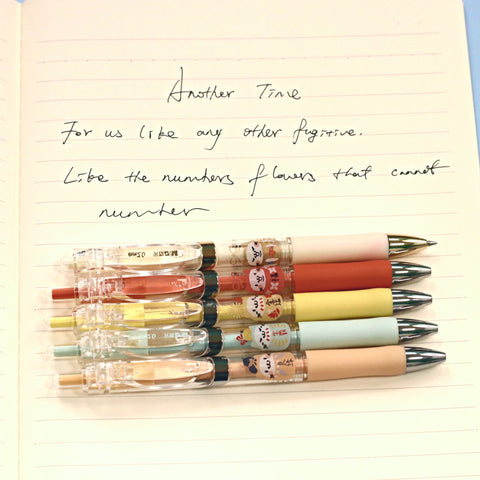 Another Time
For us like any other fugitive.
Like the numbers flowers that cannot
number
0.5mm